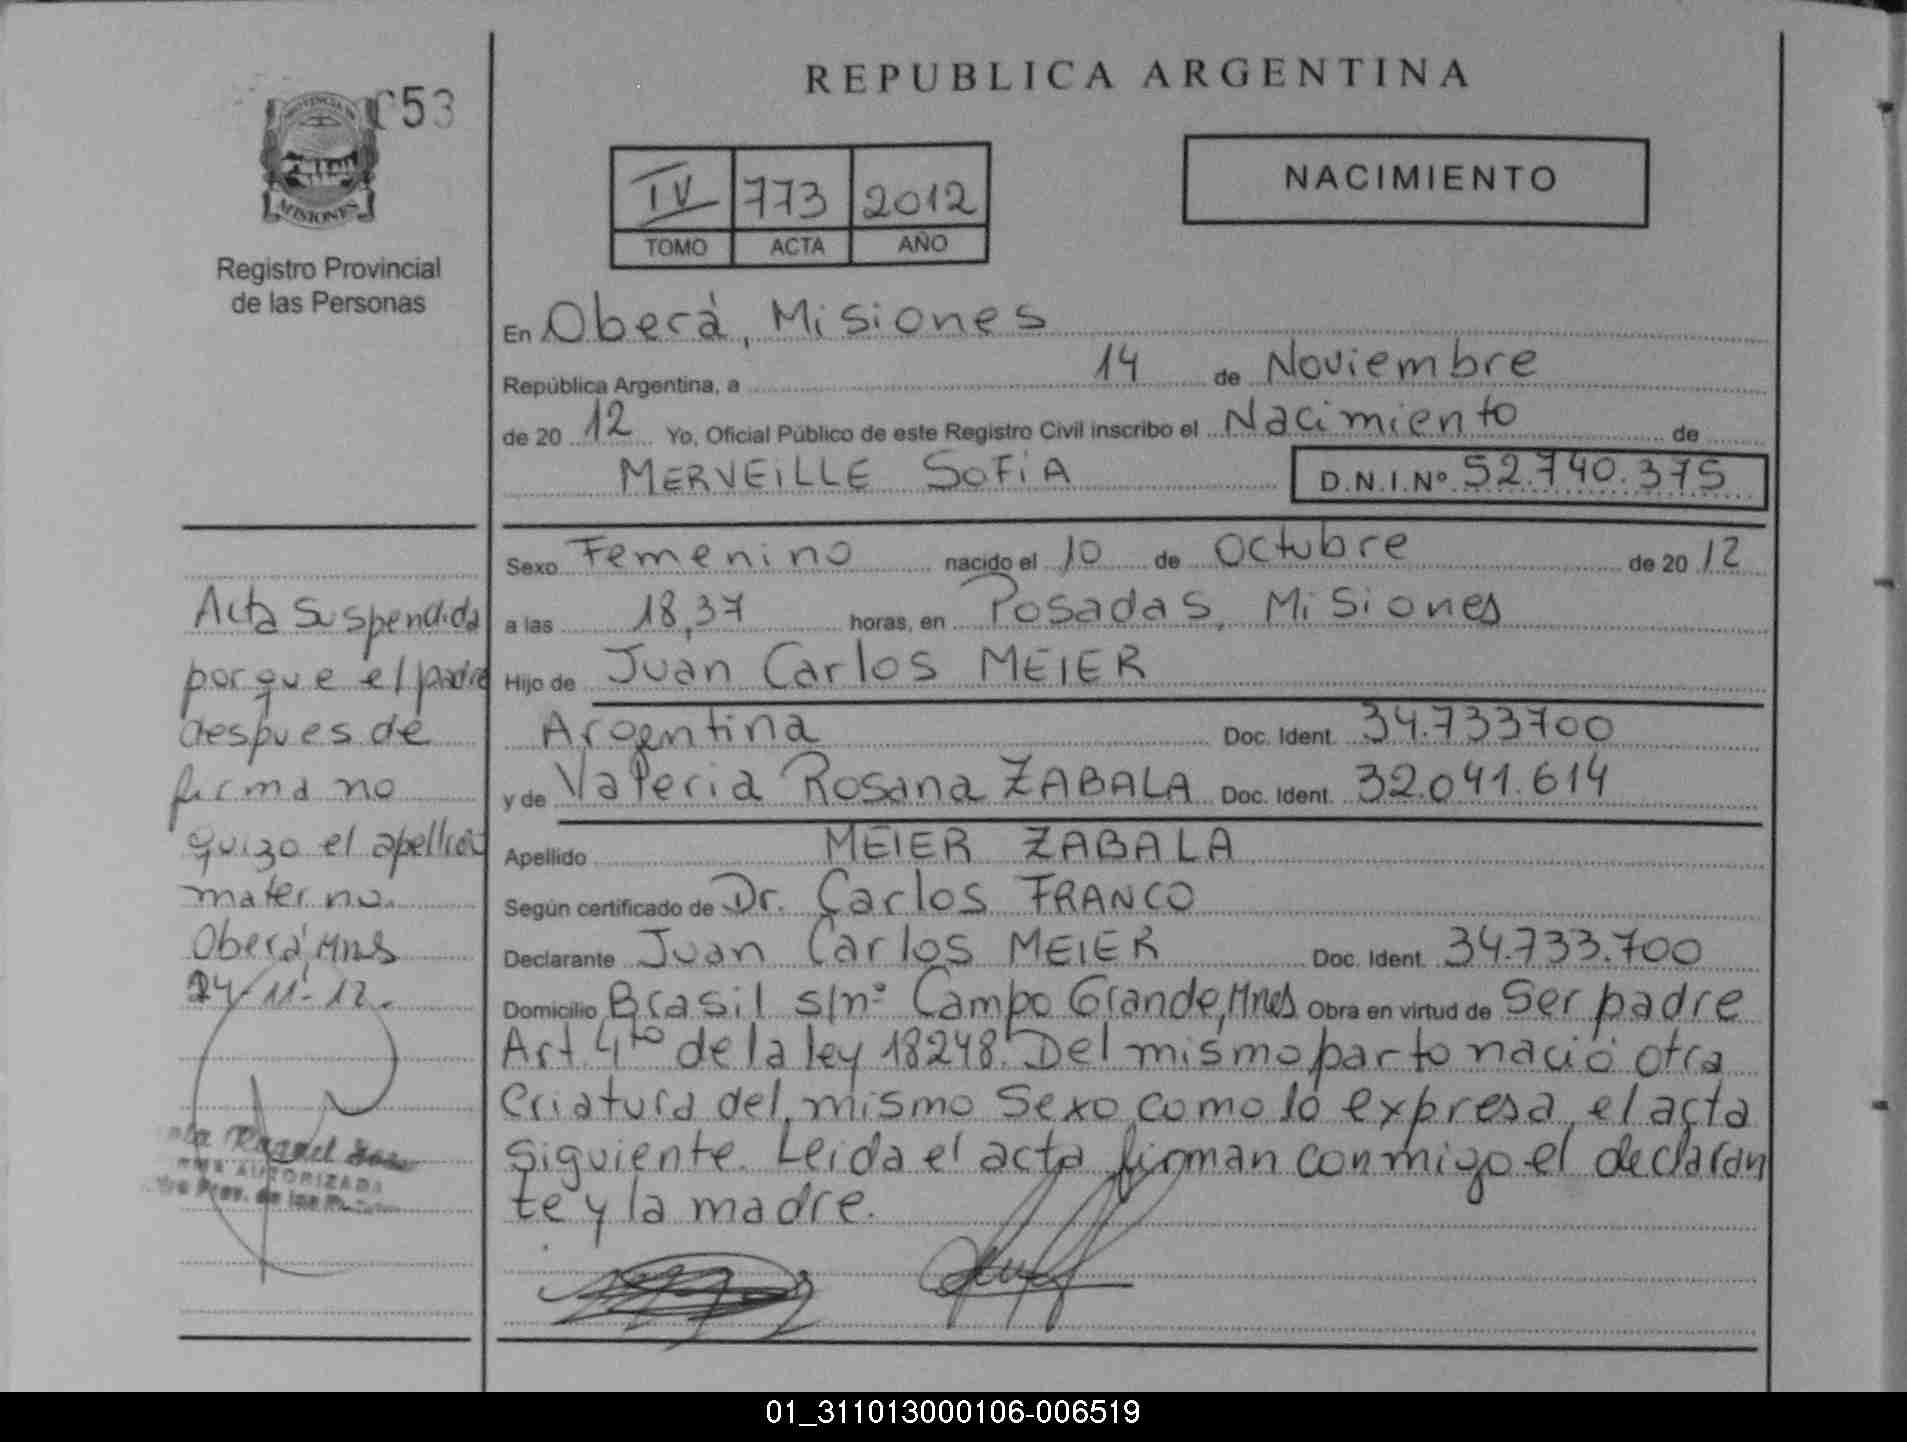 REPUBLICA ARGENTINA
053
PROVINCIA DE
MISIONES
Registro Provincial
de las Personas
IV 773 2012
TOMO ACTA AÑO
NACIMIENTO
En Oberá, Misiones
República Argentina, a 14 de Noviembre
de 20 12 Yo, Oficial Público de este Registro Civil inscribo el Nacimiento de
MERVEILLE SOFÍA D.N.I.Nº 52.740.375
Sexo Femenino nacido el 10 de Octubre de 20 12
a las 18,37 horas, en Posadas, Misiones
Hijo de Juan Carlos MEIER
Argentina Doc. Ident. 34.733700
y de Valeria Rosana ZABALA Doc. Ident. 32.041.614
Apellido MEIER ZABALA
Según certificado de Dr. Carlos FRANCO
Declarante Juan Carlos MEIER Doc. Ident. 34.733.700
Domicilio Brasil s/nº Campo Grande, Mnes Obra en virtud de Ser padre
Art. 4to de la ley 18248. Del mismo parto nació otra
criatura del mismo Sexo como lo expresa el acta
siguiente. Leida el acta firman conmigo el declaran
te y la madre.
Acta Suspendida
porque el padre
despues de
firma no
quizo el apellido
materno.
Oberá, Mnes
14-11-12.
Raquel
AUTORIZADA
Prov. de las
01_311013000106-006519